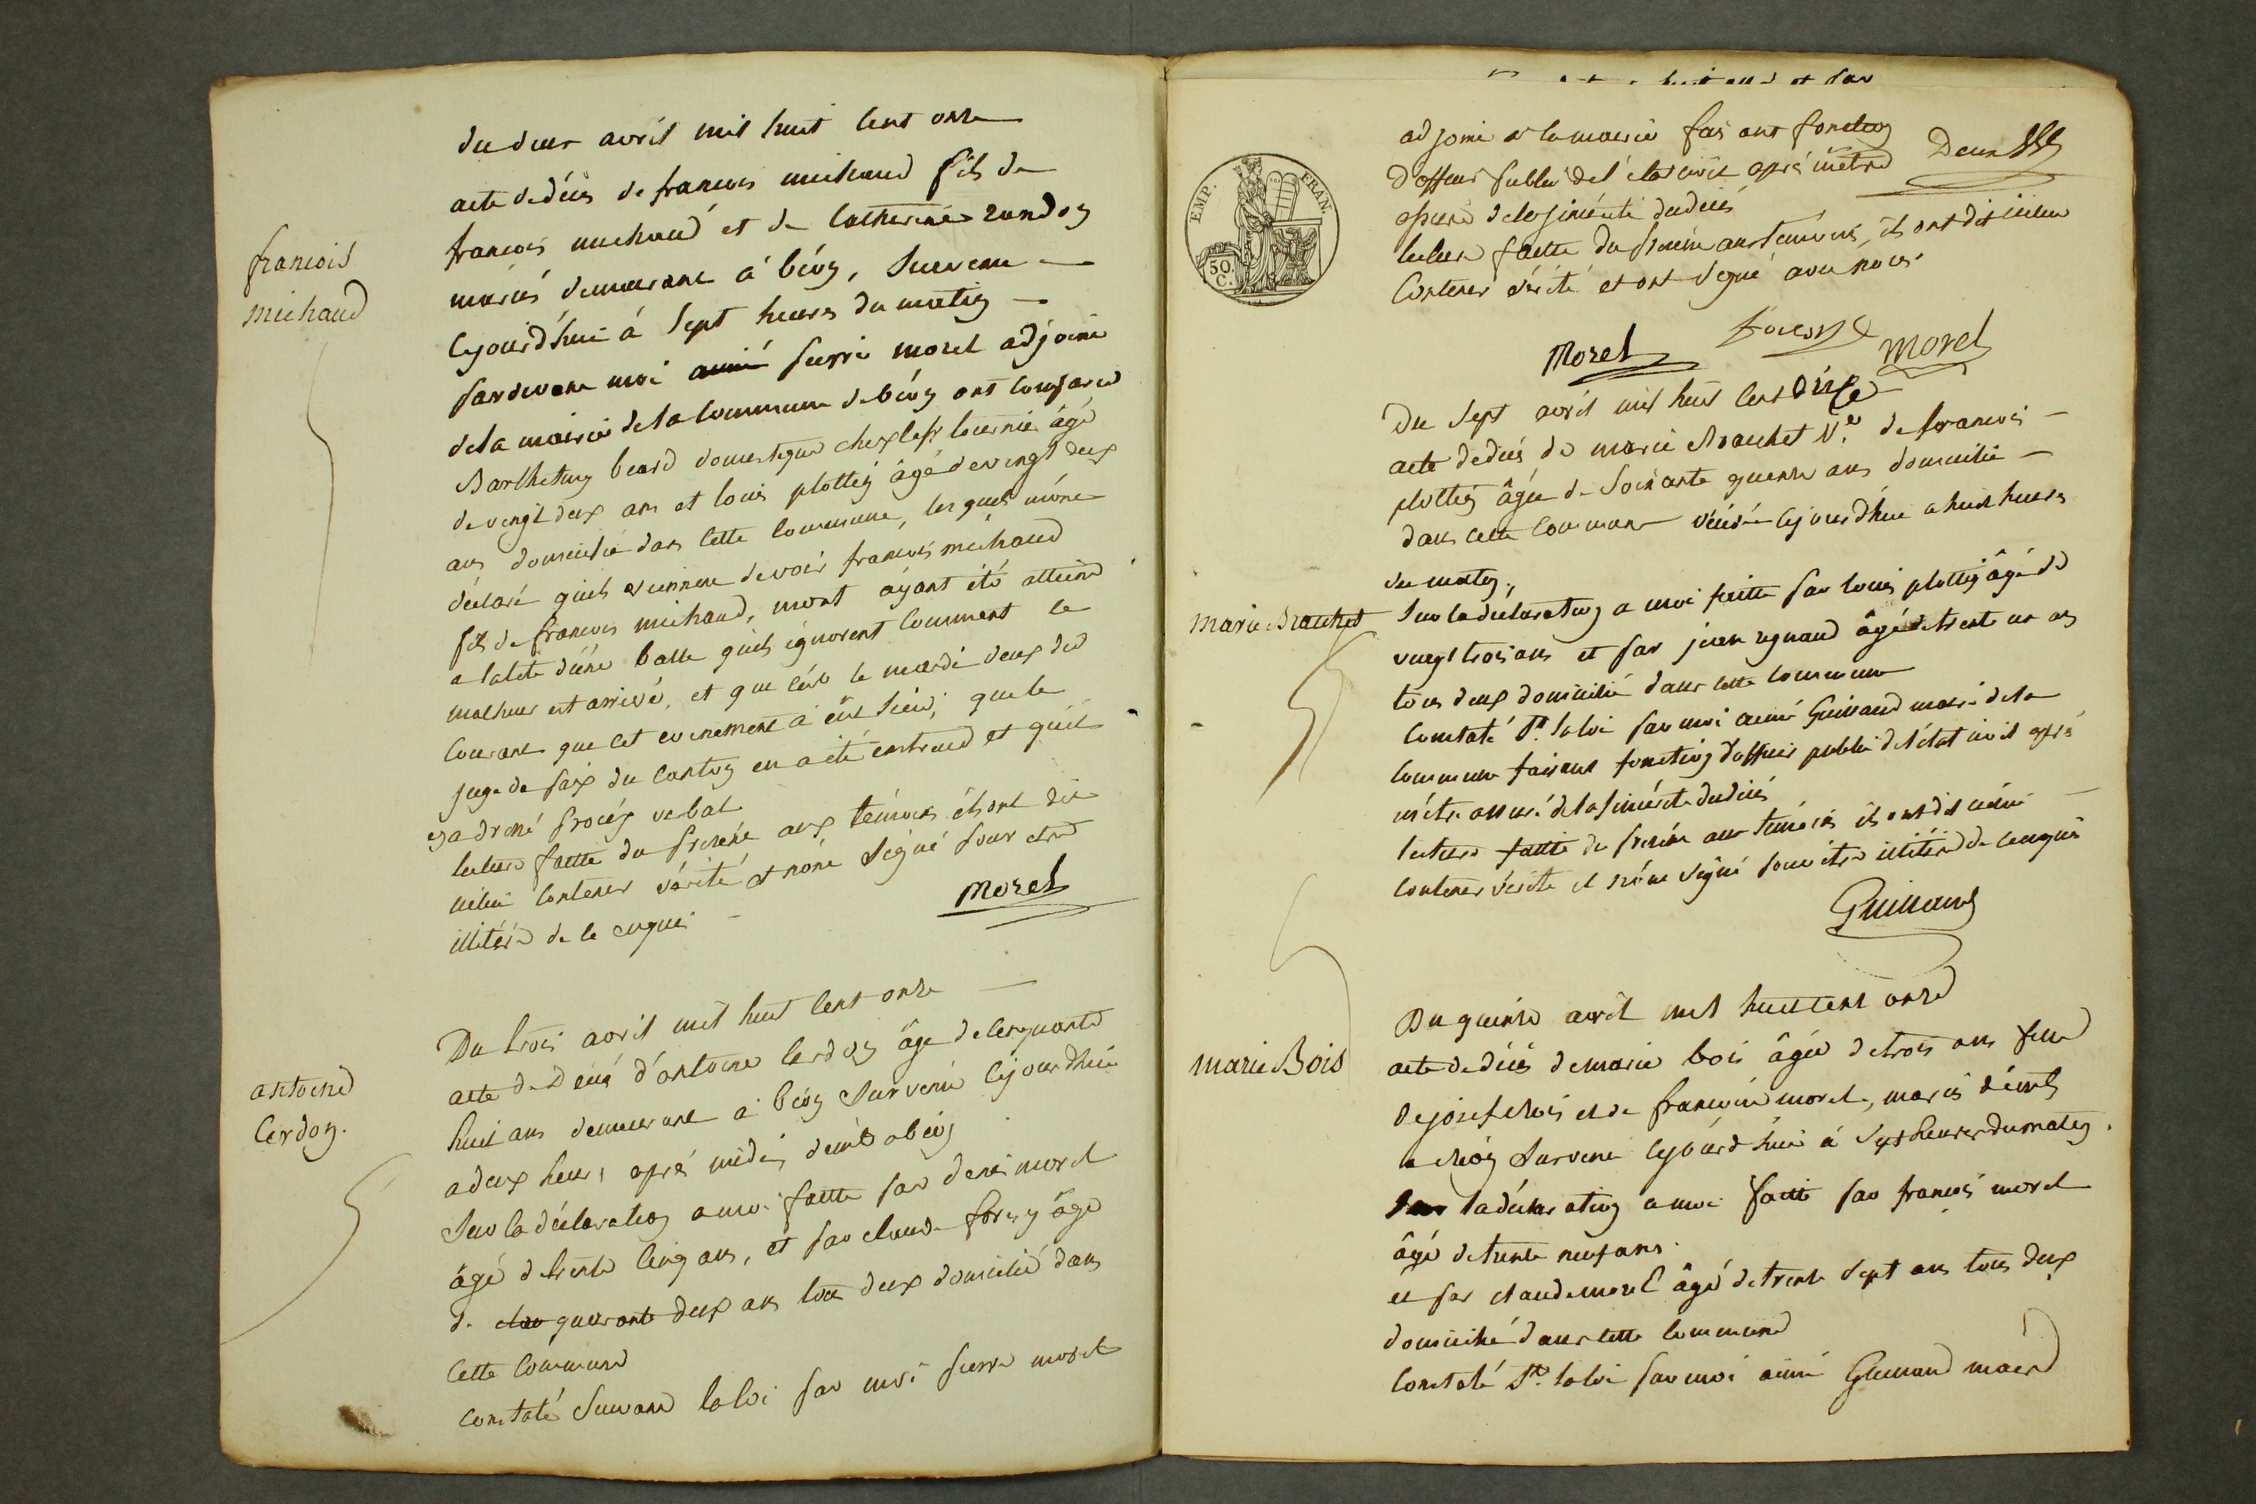 du deux avril mil huit cent onze
acte de décès de francois michaud fils de
francois michaud et de Catherine
françois
michaud
mariés demeurant à béon, survenu
cejourd'hui à sept heures du matin
pardevant moi pierre morel adjoint
de la mairie de la commune de béon ont comparu
Barthelmy béard domestique chez le sr âgé
de vingt deux ans et louis plottin âgé de vingt deux
ans domicilié dans cette commune, les quels m'ont
déclaré quils viennent de voir francois michaud
fils de francois michaud, mort ayant été atteint
a la tete d'une balle quils ignorent comment le
malheur est arrivé, et que c'est le mardi deux du
courant que cet evenement a eut lieu, que le
juge de paix du canton en a été instruit et qu'il
en a dressé procés verbal
lecture faitte du present aux témoins ils ont dit
icelui contenir vérité et n'ont signé pour etre
illitéré de ce enquis
Morel
Du trois avril mil huit cent onze
acte de Decès d'antoine Cerdon âgé de cinquante
antoine
Cerdon.
huit ans demeurant à béon survenu cejourdhui
a deux heures après midi, à béon
Sur la déclaration a moi faitte par denis morel
âgé de trente cinq ans, et par claude âgé
de quarante deux ans tous deux domicilié dans
cette commune
constaté suivant la loi par moi pierre morel
EMP. FRAN.
50
C.
adjoint a la mairie faisant fonction
d'officier public de l'état civil après m'etre
assuré de la sincérité du décès
lecture faitte du present aux temoins, ils ont dit icelui
contenir vérité et ont signé avec nous
Morel
morel
Du sept avril mil huit cent
acte de décès de marie Brachet Ve de francois
plottin âgée de soixante quinze ans domicilié
dans cette commune décédée cejourdhui a huit heures
du matin,
marie Brachet
Sur la déclaration a moi faitte par louis plottin âgé de
vingt trois ans et par jean âgé de trente un ans
tous deux domicilié dans cette commune
Constaté St. la loi par moi aimé Guinand maire de la
commune faisant fonction d'officier public de l'état civil après
m'être assuré de la sincérité du décès
lecture faitte du present aux témoins ils ont dit icelui
contenir vérité et n'ont signé pour être illitéré de ce enquis
Guinand
Du quinze avril mil huit cent onze
marie Bois
acte de décès de marie bois âgée de trois ans fille
de josef Bois et de francoise morel, mariés
a Béon survenu cejourd'hui à sept heures du matin.
Sur la déclaration a moi faitte par francois morel
âgé de trente neuf ans
et par claude morel âgé de trente sept ans tous deux
domicilié dans cette commune
Constaté St. la loi par moi aimé Guinand maire